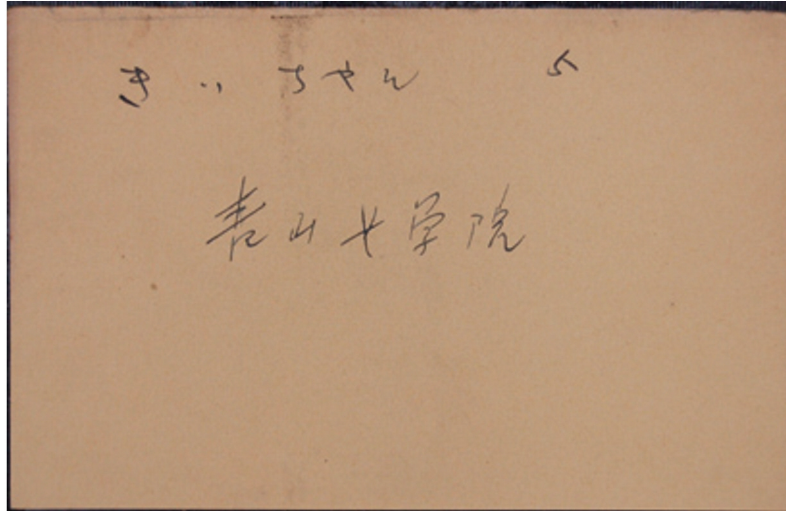 きいちゃん 5
青山女学院